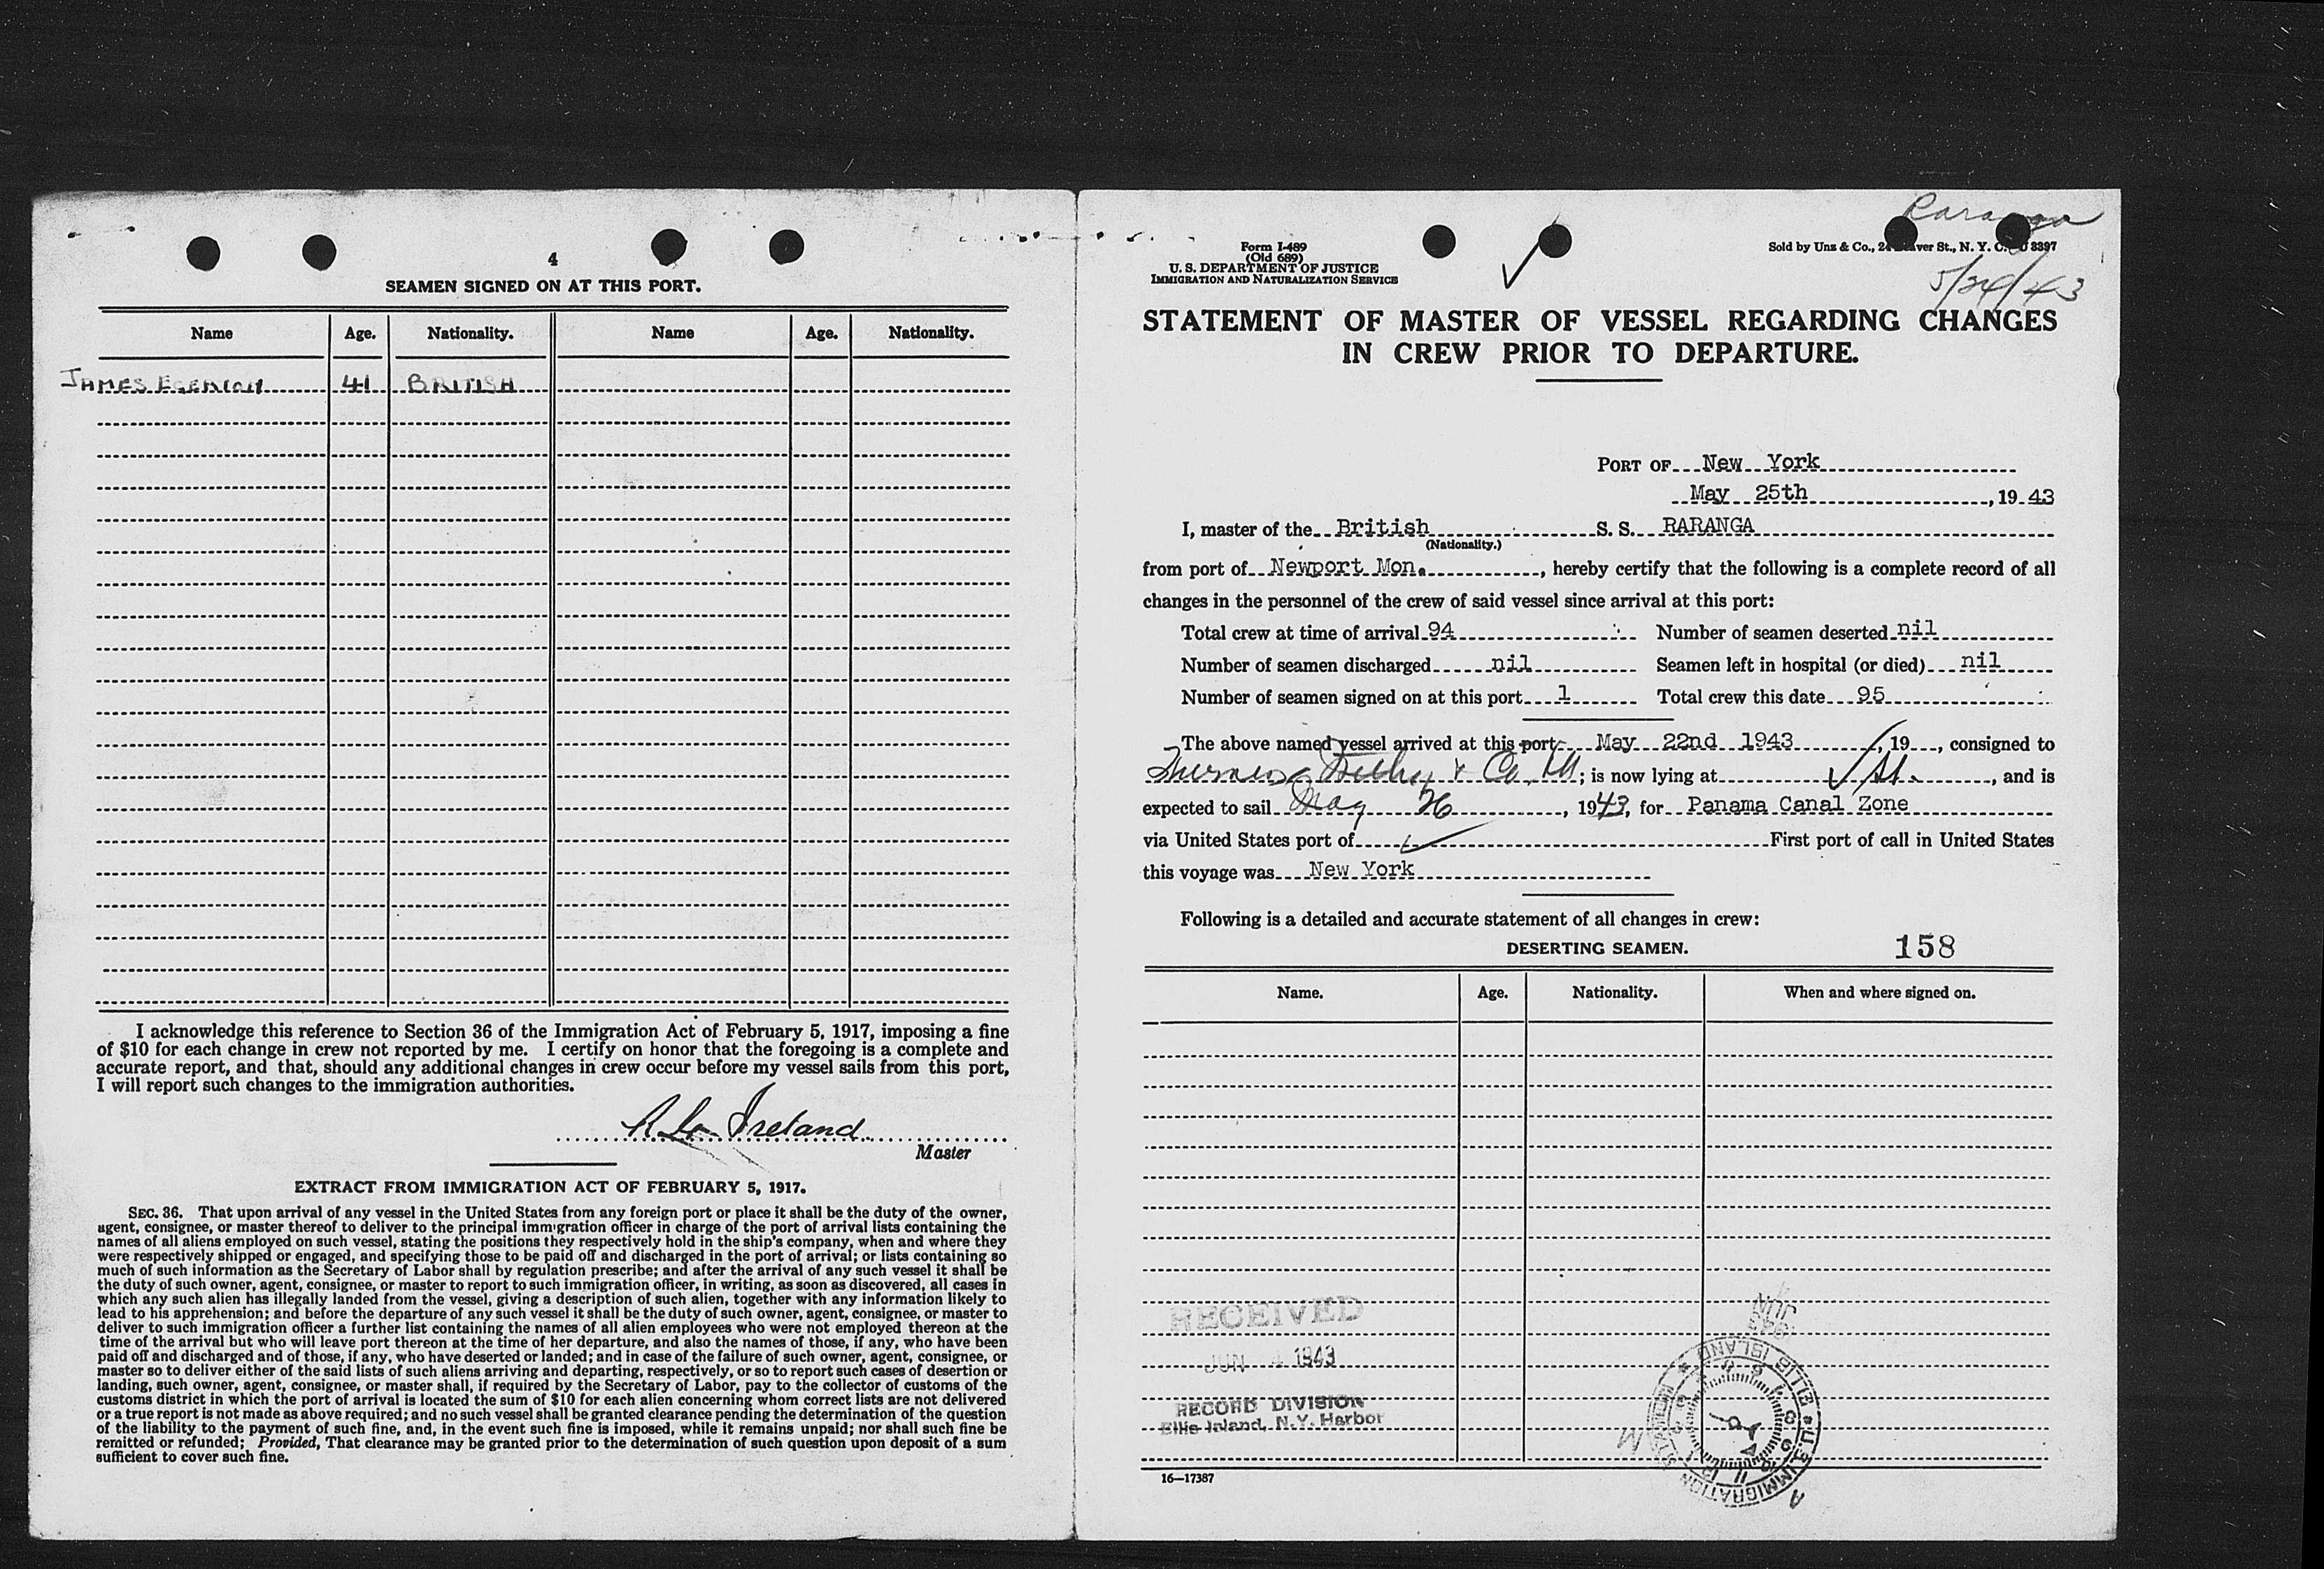 4
SEAMEN SIGNED ON AT THIS PORT.
Name Age. Nationality. Name Age. Nationality.
JAMES EGERTON 41 BRITISH
I acknowledge this reference to Section 36 of the Immigration Act of February 5, 1917, imposing a fine
of $10 for each change in crew not reported by me. I certify on honor that the foregoing is a complete and
accurate report, and that, should any additional changes in crew occur before my vessel sails from this port,
I will report such changes to the immigration authorities.
Ireland
Master
EXTRACT FROM IMMIGRATION ACT OF FEBRUARY 5, 1917.
SEC. 36. That upon arrival of any vessel in the United States from any foreign port or place it shall be the duty of the owner,
agent, consignee, or master thereof to deliver to the principal immigration officer in charge of the port of arrival lists containing the
names of all aliens employed on such vessel, stating the positions they respectively hold in the ship's company, when and where they
were respectively shipped or engaged, and specifying those to be paid off and discharged in the port of arrival; or lists containing so
much of such information as the Secretary of Labor shall by regulation prescribe; and after the arrival of any such vessel it shall be
the duty of such owner, agent, consignee, or master to report to such immigration officer, in writing, as soon as discovered, all cases in
which any such alien has illegally landed from the vessel, giving a description of such alien, together with any information likely to
lead to his apprehension; and before the departure of any such vessel it shall be the duty of such owner, agent, consignee, or master to
deliver to such immigration officer a further list containing the names of all alien employees who were not employed thereon at the
time of the arrival but who will leave port thereon at the time of her departure, and also the names of those, if any, who have been
paid off and discharged and of those, if any, who have deserted or landed; and in case of the failure of such owner, agent, consignee, or
master so to deliver either of the said lists of such aliens arriving and departing, respectively, or so to report such cases of desertion or
landing, such owner, agent, consignee, or master shall, if required by the Secretary of Labor, pay to the collector of customs of the
customs district in which the port of arrival is located the sum of $10 for each alien concerning whom correct lists are not delivered
or a true report is not made as above required; and no such vessel shall be granted clearance pending the determination of the question
of the liability to the payment of such fine, and, in the event such fine is imposed, while it remains unpaid; nor shall such fine be
remitted or refunded; Provided, That clearance may be granted prior to the determination of such question upon deposit of a sum
sufficient to cover such fine.
Raranga
Form I-489
(Old 689)
U. S. DEPARTMENT OF JUSTICE
IMMIGRATION AND NATURALIZATION SERVICE
Sold by Unz & Co., 24 Beaver St., N. Y. C. 8397
5/24/43
STATEMENT OF MASTER OF VESSEL REGARDING CHANGES
IN CREW PRIOR TO DEPARTURE.
PORT OF New York
May 25th, 1943
I, master of the British S. S. RARANGA
(Nationality.)
from port of Newport Mon., hereby certify that the following is a complete record of all
changes in the personnel of the crew of said vessel since arrival at this port:
Total crew at time of arrival 94 Number of seamen deserted nil
Number of seamen discharged nil Seamen left in hospital (or died) nil
Number of seamen signed on at this port 1 Total crew this date 95
The above named vessel arrived at this port May 22nd 1943, 19, consigned to
& Co; is now lying at, and is
expected to sail May 26, 1943, for Panama Canal Zone
via United States port of First port of call in United States
this voyage was New York
Following is a detailed and accurate statement of all changes in crew:
DESERTING SEAMEN. 158
Name. Age. Nationality. When and where signed on.
RECEIVED
JUN 4 1943
RECORD DIVISION
Ellis Island, N.Y. Harbor
JUN
1943
ELLIS ISLAND
U.S. IMMIGRATION
16—17387